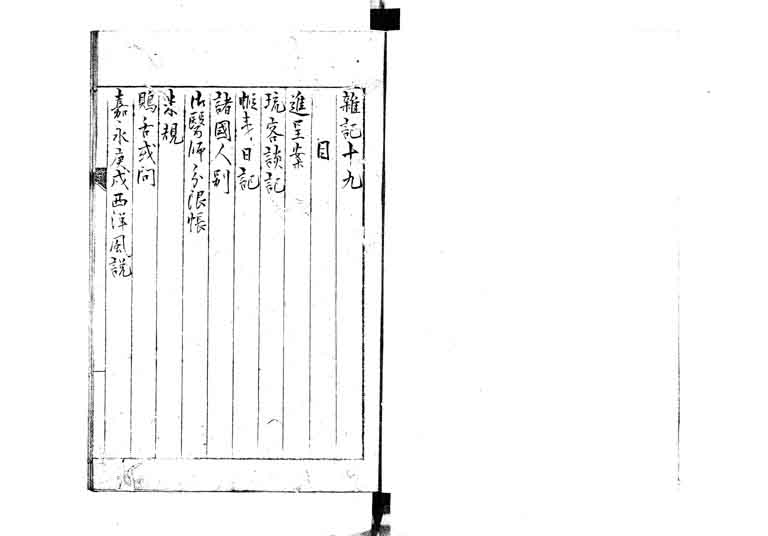 雜記十九
目
進呈案
琉客談記
帳青日記
諸國人別
御醫師分限帳
米規
鴃舌或問
嘉永庚戌西洋風說